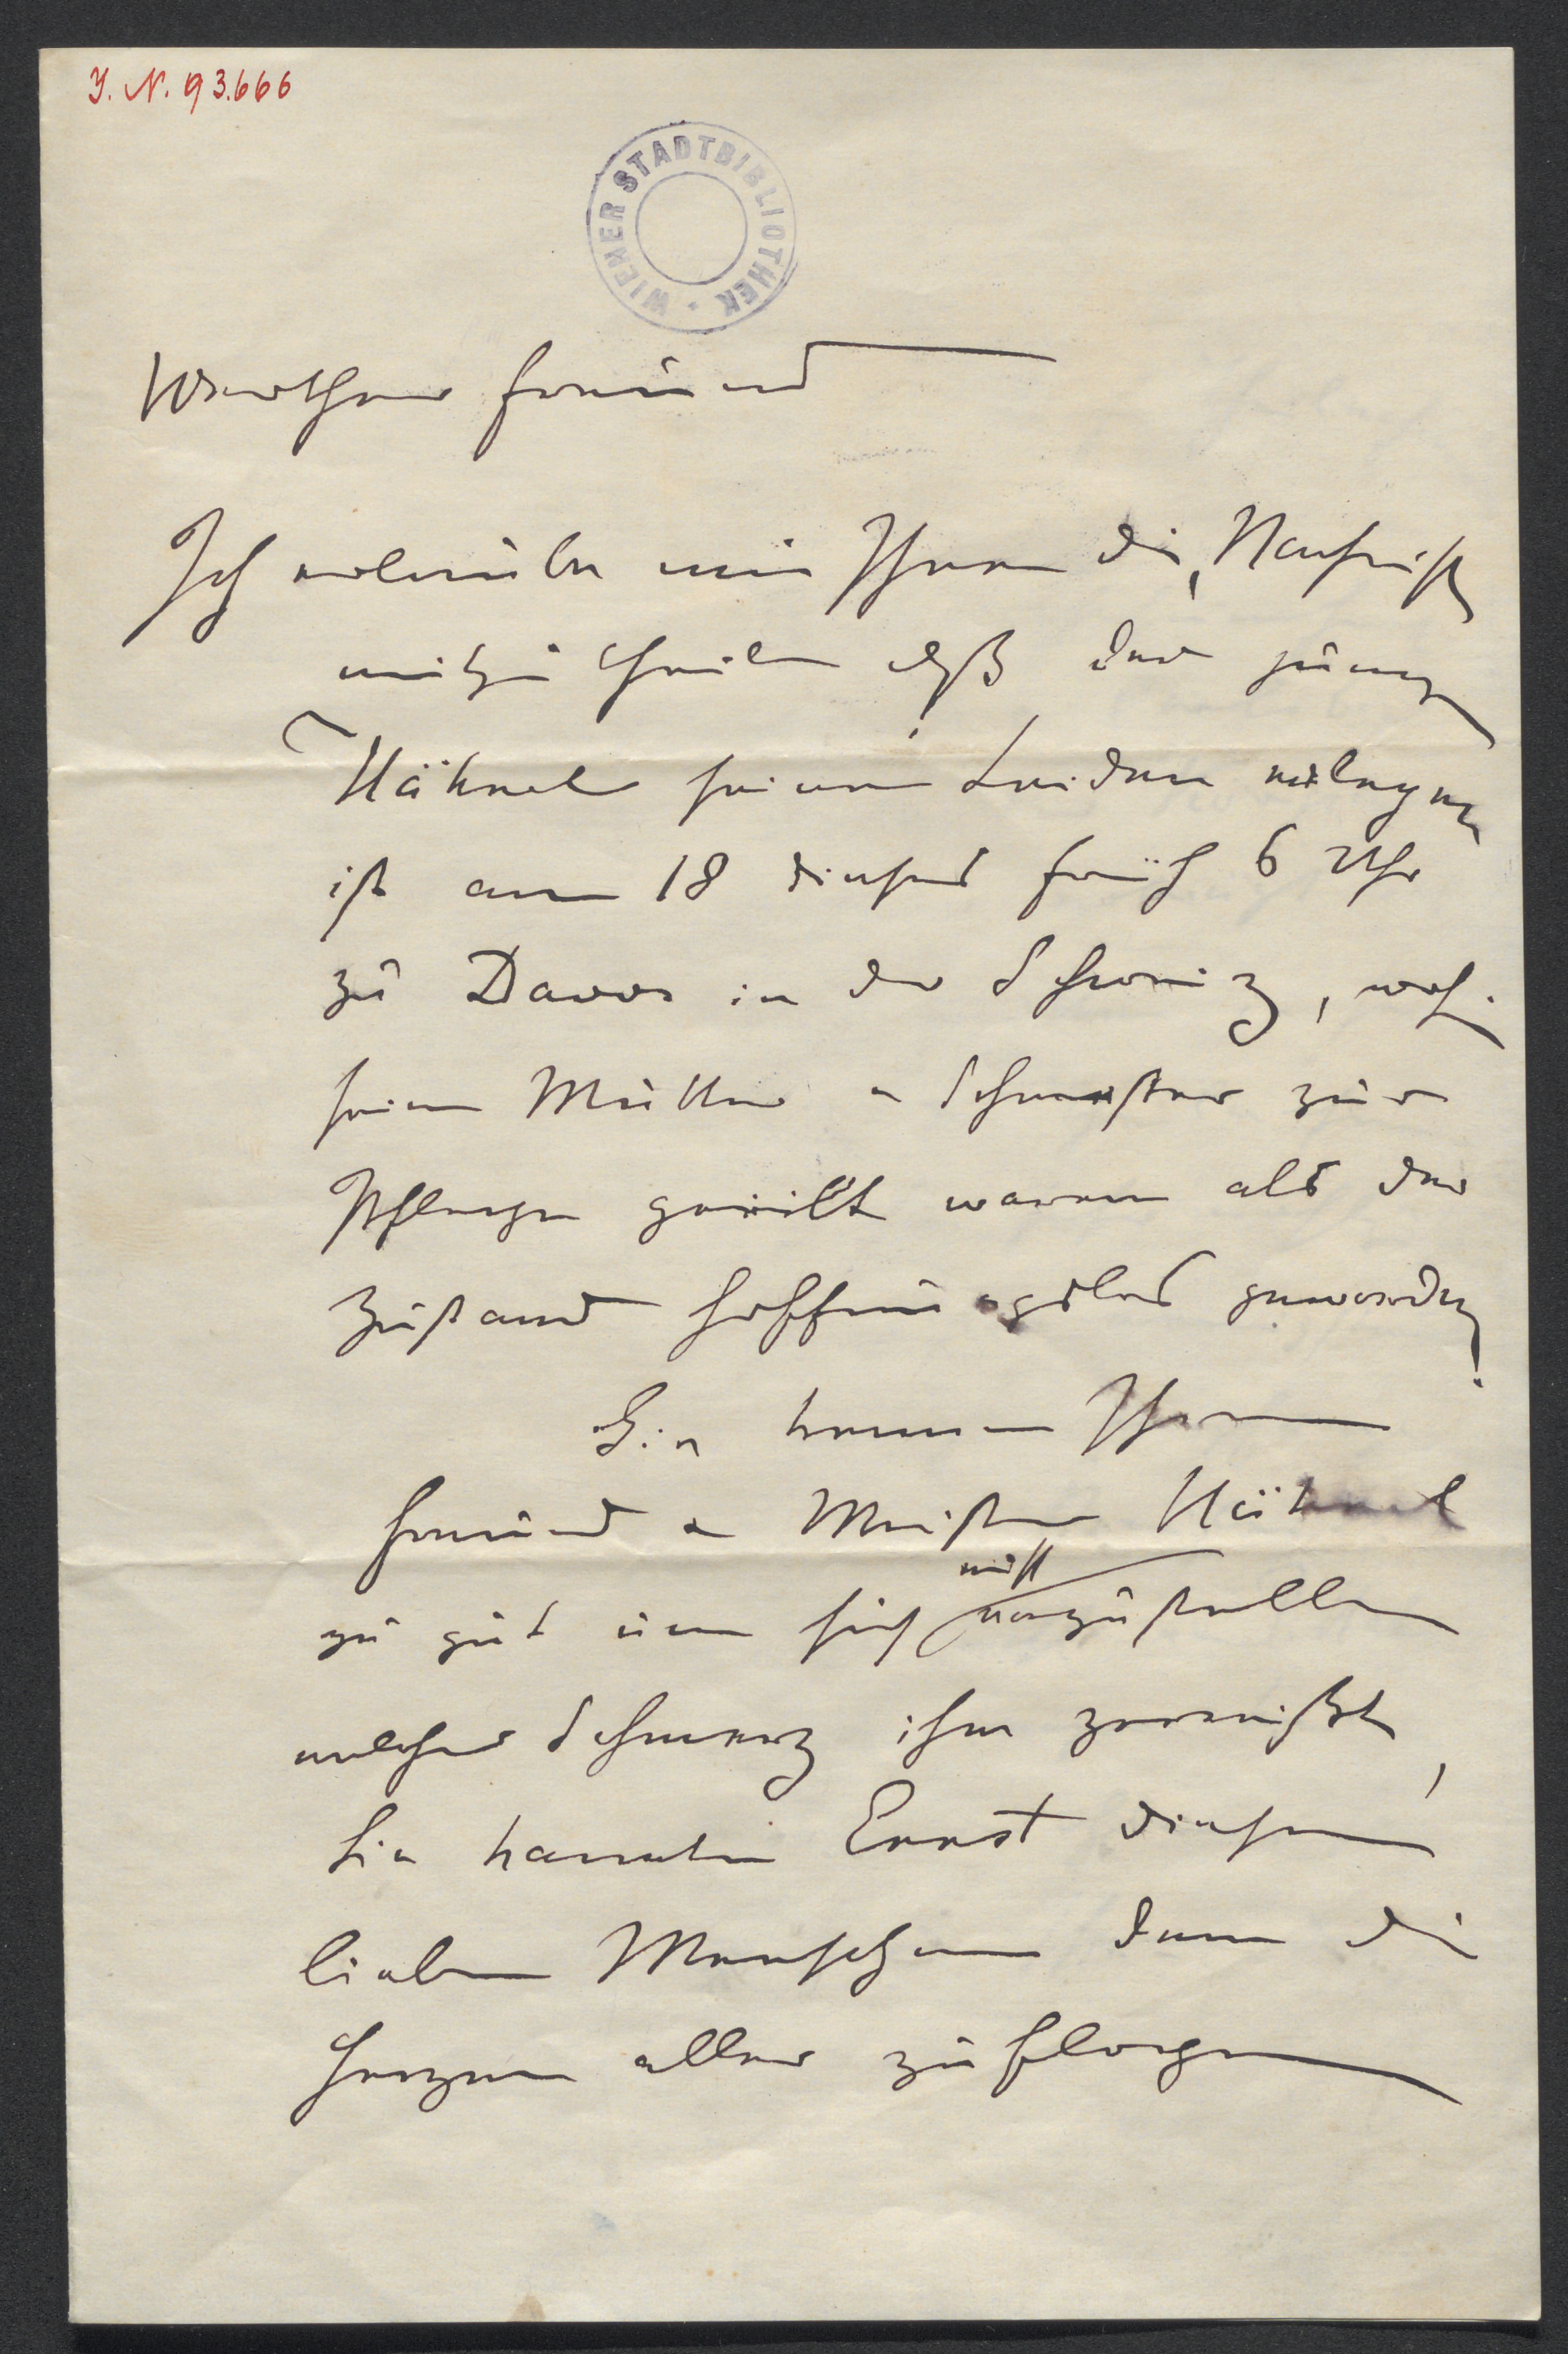 J. N. 93.666
WIENER STADTBIBLIOTHEK
Werther Freund
Ich erlaube mir Ihnen die Nachricht
mitzutheilen daß der junge
Hähnel seinem Leiden erlegen
ist am 18 dieses früh 6 Uhr
zu Davos in der Schweiz, woh-
seine Mutter u Schwester zur
Pflege geeilt waren als der
Zustand hoffnungslos geworden!
Sie kennen Ihren
Freund u Meister Hähnel
zu gut um sich nicht vorzustellen
welcher Schmerz ihn zerreißt,
Sie kannten Ernst diesen
lieben Menschen dem die
Herzen aller zuflogen